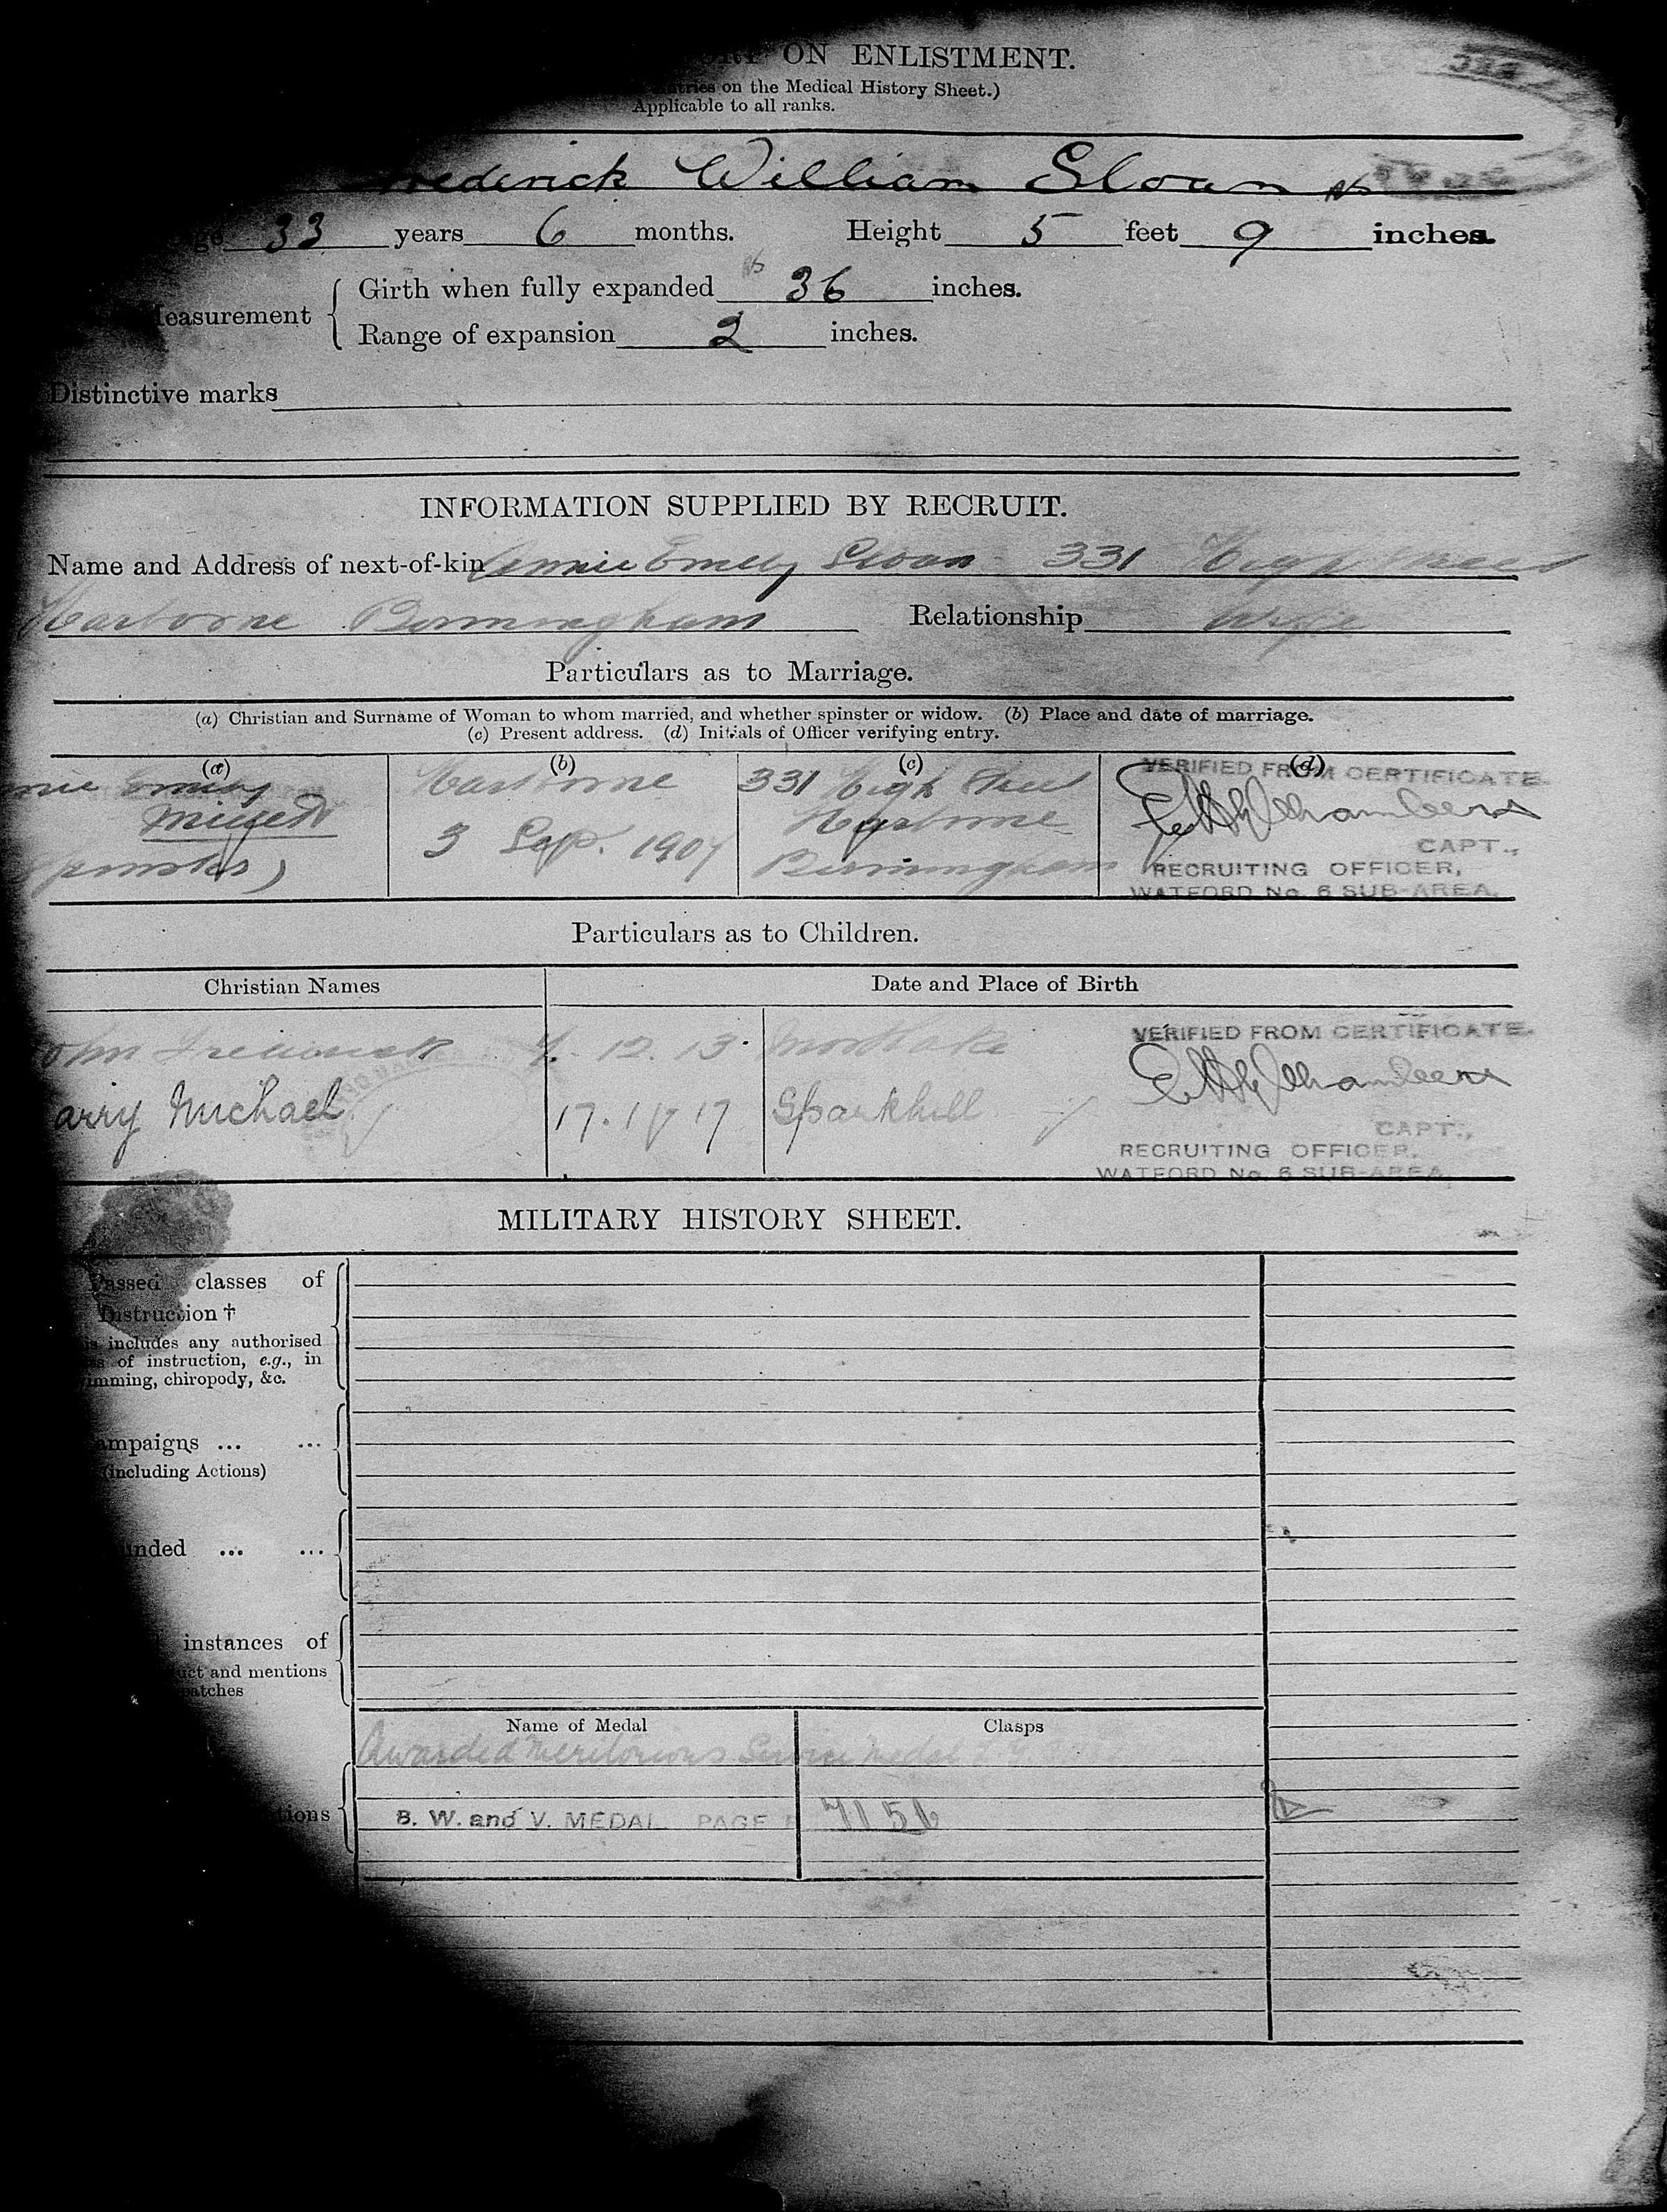 ON ENLISTMENT.
on the Medical History Sheet.)
Applicable to all ranks.
rederick William Sloan
33 years 6 months. Height 5 feet 9 inches.
Girth when fully expanded 36 inches.
easurement
Range of expansion 2 inches.
Distinctive marks
INFORMATION SUPPLIED BY RECRUIT.
Name and Address of next-of-kin Annie Emily Sloan 331 High Street
Harborne Birmingham Relationship Wife
Particulars as to Marriage.
(a) Christian and Surname of Woman to whom married, and whether spinster or widow. (b) Place and date of marriage.
(c) Present address. (d) Initials of Officer verifying entry.
(a) (b) (c) (d)
nie Emily Harborne 331 High Street VERIFIED FROM CERTIFICATE
Harborne
3 Sep. 190
CAPT.,
Birmingham RECRUITING OFFICER,
WATFORD No. 6 SUB-AREA.
Particulars as to Children.
Christian Names Date and Place of Birth
ohn Frederick 12. 13. Mortlake VERIFIED FROM CERTIFICATE.
arry Michael 17. 17 Sparkhill
CAPT.,
RECRUITING OFFICER.
WATFORD No. 6 SUB-AREA.
MILITARY HISTORY SHEET.
Passed classes of
Instruction †
includes any authorised
of instruction, e.g., in
imming, chiropody, &c.
ampaigns ... ...
(including Actions)
unded ... ...
instances of
uct and mentions
patches
Name of Medal Clasps
Awarded Meritorious Service Medal
tions
B. W. and V. MEDAL PAGE 7156